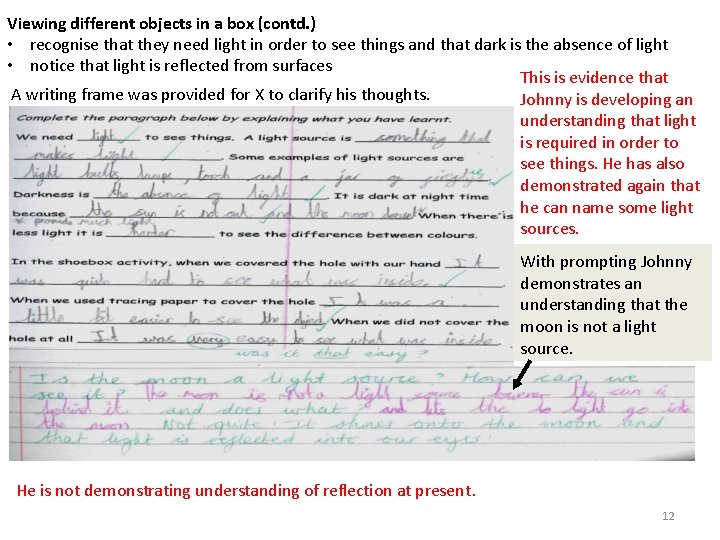 Viewing different objects in a box (contd.)
• recognise that they need light in order to see things and that dark is the absence of light
• notice that light is reflected from surfaces
A writing frame was provided for X to clarify his thoughts.
This is evidence that
Johnny is developing an
understanding that light
is required in order to
see things. He has also
demonstrated again that
he can name some light
sources.
With prompting Johnny
demonstrates an
understanding that the
moon is not a light
source.
Complete the paragraph below by explaining what you have learnt.
We need light to see things. A light source is something that
makes light. Some examples of light sources are
light bulb lamps, torch and a jar of
Darkness is the absence of light. It is dark at night time
because the sun is not out and the moon When there is
provide much light
less light it is harder to see the difference between colours.
In the shoebox activity, when we covered the hole with our hand It
was quite hard to see what was inside.
When we used tracing paper to cover the hole It was a
little bit easier to see the object When we did not cover the
hole at all It was very easy to see what was inside.
was it that easy?
Is the moon a light source? How can we
see it? The moon is not a light the sun is
behind it and does what? and lets the light go into
the moon Not quite! It shines onto the moon and
that light is reflected into our eyes!
He is not demonstrating understanding of reflection at present.
12